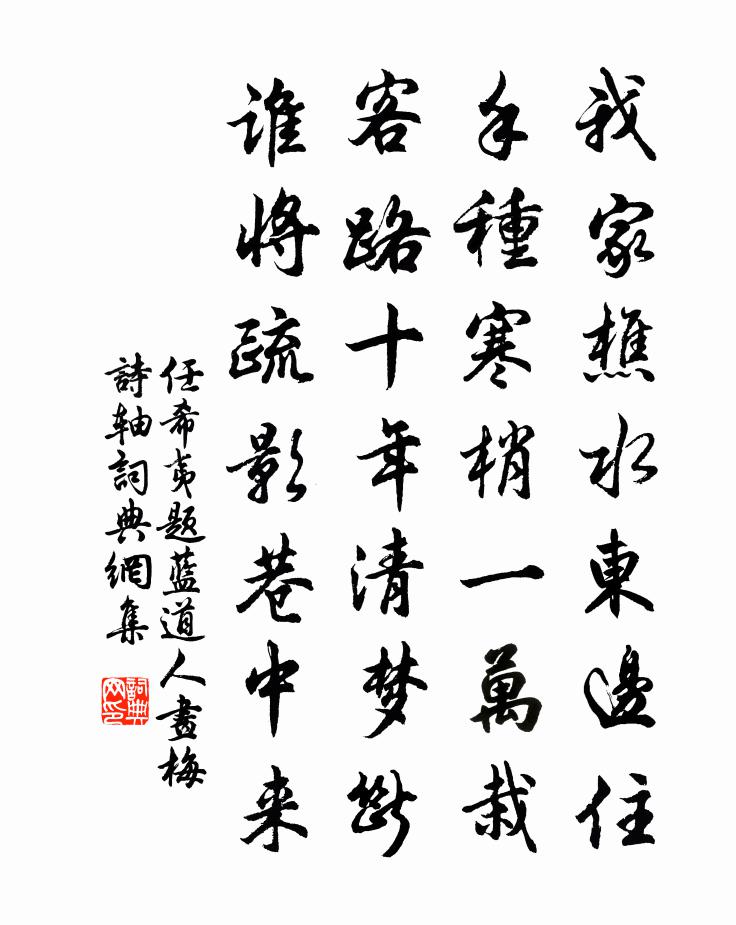 我家樵水東邊住
手種寒梢一萬栽
客路十年清梦斷
誰將疏影巷中来
任希夷題藍道人畫梅
詩轴詞典網集
詞典
网印